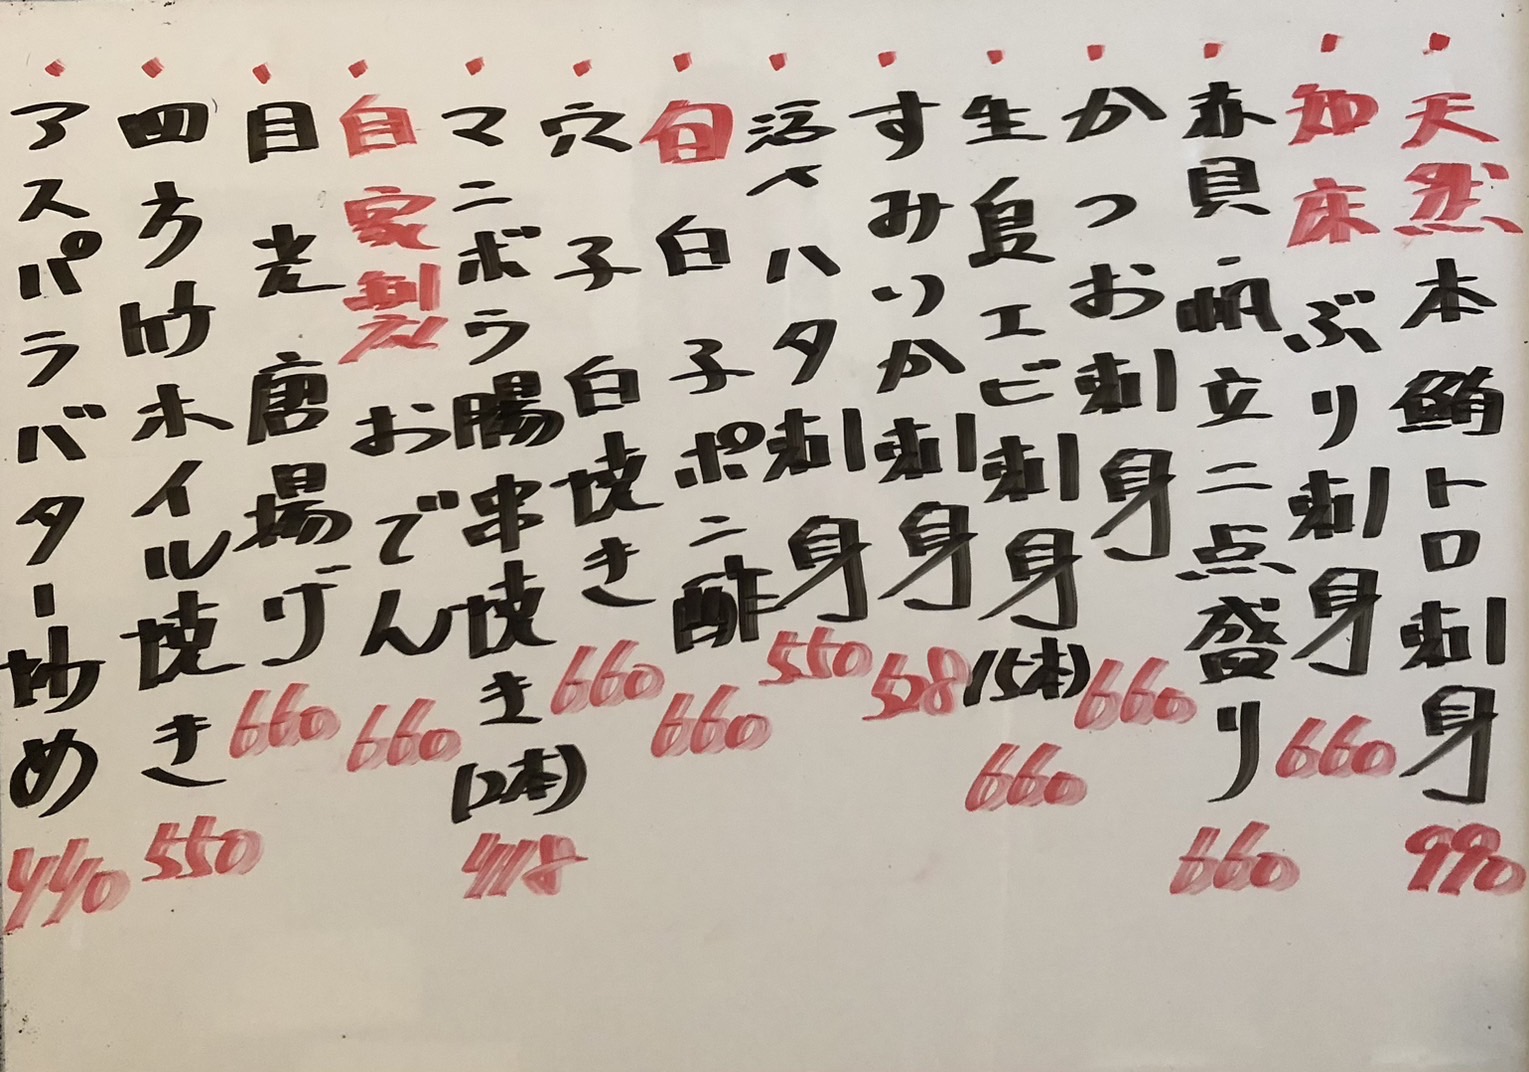 ・天然本鮪トロ刺身 990
・知床ぶり刺身 660
・赤貝帆立二点盛り 660
・かつお刺身 660
・生島エビ刺身(5本) 660
・すみいか刺身 528
・活〆ハタ刺身 550
・旬白子ポン酢 660
・穴子白焼き 660
・マンボウ腸串焼き(2本) 418
・自家製おでん 660
・目光唐揚げ 660
・四方竹ホイル焼き 550
・アスパラバター炒め 440